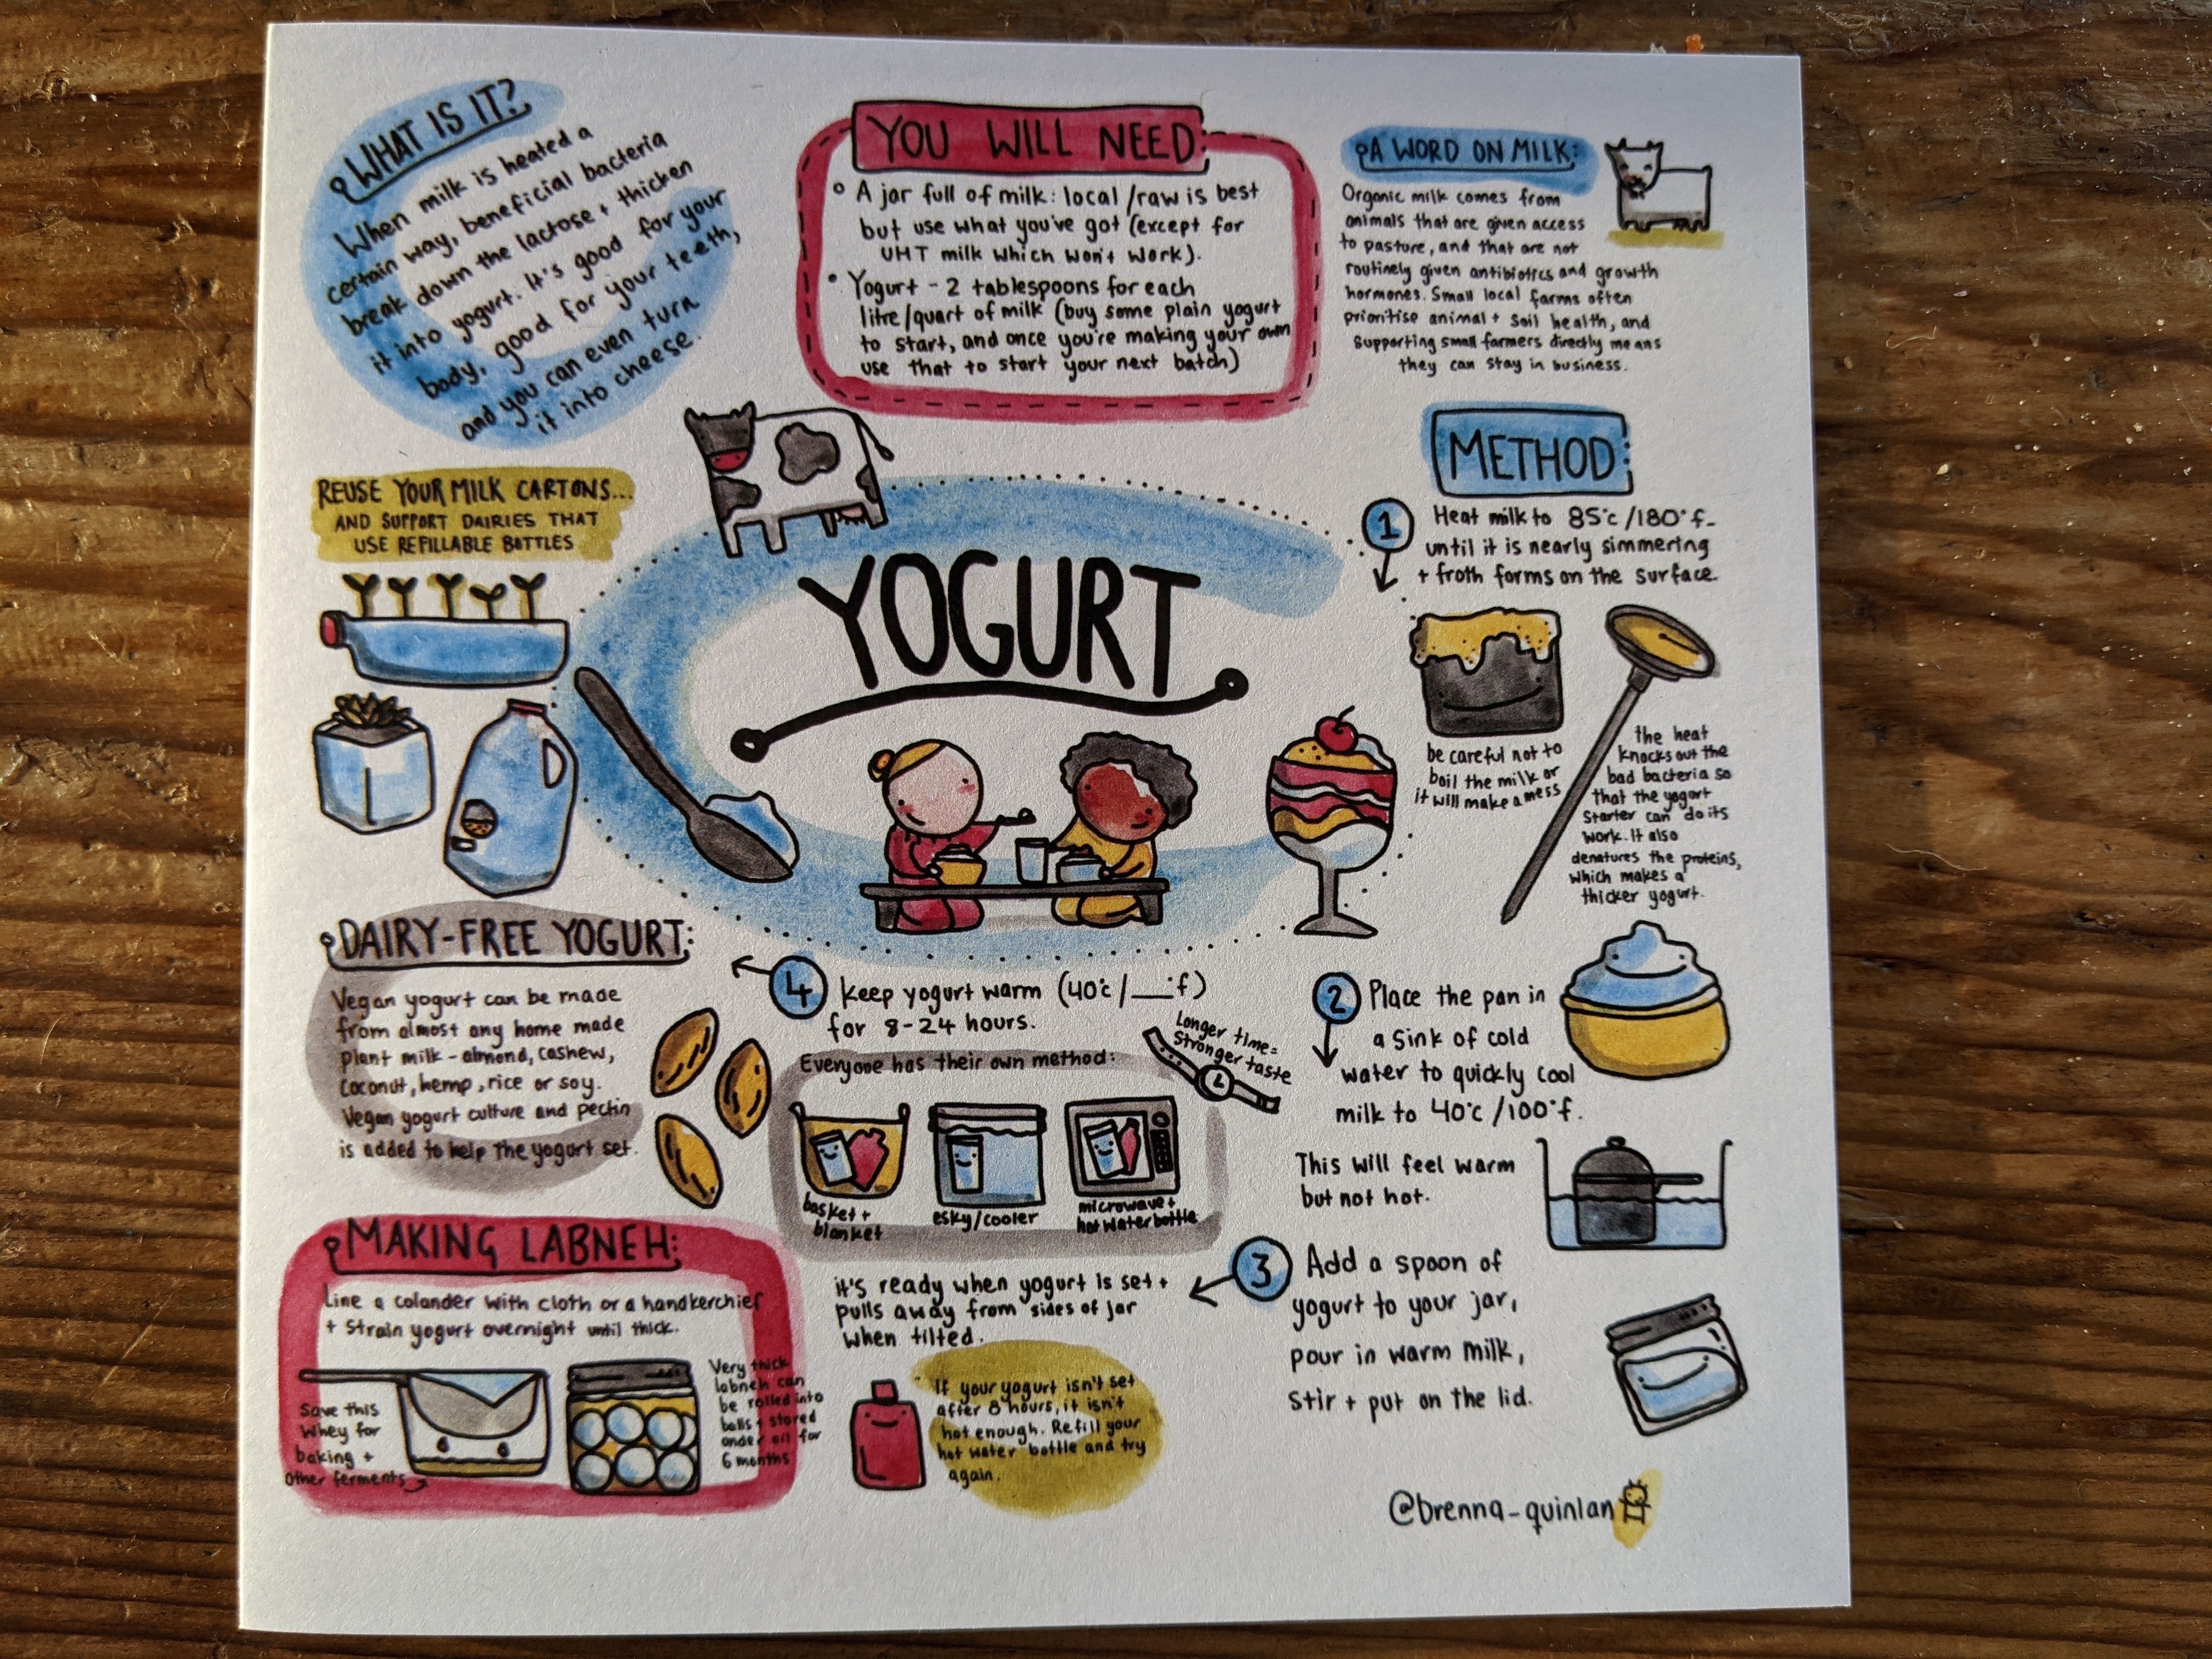 WHAT IS IT?
When milk is heated a
certain way, beneficial bacteria
break down the lactose + thicken
it into yogurt. It's good for your
body, good for your teeth,
and you can even turn
it into cheese.
YOU WILL NEED:
A jar full of milk: local/raw is best
but use what you've got (except for
UHT milk which won't work).
Yogurt - 2 tablespoons for each
litre/quart of milk (buy some plain yogurt
to start, and once you're making your own
use that to start your next batch)
A WORD ON MILK:
Organic milk comes from
animals that are given access
to pasture, and that are not
routinely given antibiotics and growth
hormones. Small local farms often
prioritise animal + soil health, and
supporting small farmers directly means
they can stay in business.
REUSE YOUR MILK CARTONS...
AND SUPPORT DAIRIES THAT
USE REFILLABLE BOTTLES
YOGURT
METHOD:
1
Heat milk to 85°c/180°f-
until it is nearly simmering
+ froth forms on the surface.
be careful not to
boil the milk or
it will make a mess
the heat
knocks out the
bad bacteria so
that the yogurt
starter can do its
work. It also
denatures the proteins,
which makes a
thicker yogurt.
2
Place the pan in
a sink of cold
water to quickly cool
milk to 40°c/100°f.
This will feel warm
but not hot.
3
Add a spoon of
yogurt to your jar,
pour in warm milk,
stir + put on the lid.
4
Keep yogurt warm (40°c/__°f)
for 8-24 hours.
Longer time=
Stronger taste
Everyone has their own method:
basket +
blanket
esky/cooler
microwave+
hot water bottle
it's ready when yogurt is set +
pulls away from sides of jar
when tilted.
If your yogurt isn't set
after 8 hours, it isn't
hot enough. Refill your
hot water bottle and try
again.
DAIRY-FREE YOGURT:
Vegan yogurt can be made
from almost any home made
plant milk - almond, cashew,
coconut, hemp, rice or soy.
Vegan yogurt culture and pectin
is added to help the yogurt set.
MAKING LABNEH:
Line a colander with cloth or a handkerchief
+ strain yogurt overnight until thick.
Save this
whey for
baking +
other ferments
Very thick
labneh can
be rolled into
balls + stored
under oil for
6 months
@brenna_quinlan